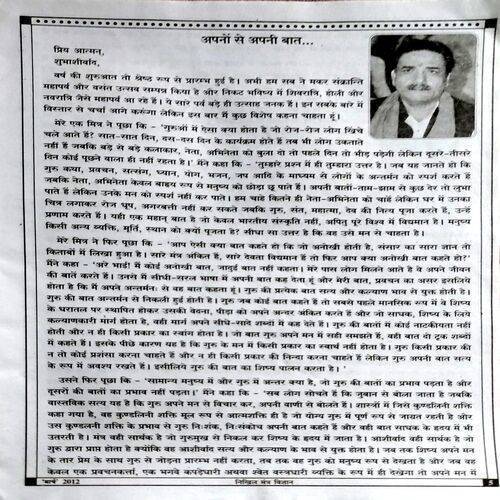 अपनों से अपनी बात...
प्रिय आत्मन्,
शुभाशीर्वाद,
वर्ष की शुरुआत तो श्रेष्ठ रूप से प्रारम्भ हुई है। अभी हम सब ने मकर संक्रान्ति
महापर्व और वसंत उत्सव सम्पन्न किया है और निकट भविष्य में शिवरात्रि, होली और
नवरात्रि जैसे महापर्व आ रहे हैं। ये सारे पर्व बड़े ही उत्साह जनक हैं। इन सबके बारे में
विस्तार से चर्चा आगे करूंगा लेकिन इस बार मैं कुछ विशेष कहना चाहता हूं।
मेरे एक मित्र ने पूछा कि - 'गुरुओं में ऐसा क्या होता है जो रोज-रोज लोग खिंचे
चले आते हैं? सात-सात दिन, दस-दस दिन के कार्यक्रम होते हैं तब भी लोग उकताते
नहीं हैं जबकि बड़े से बड़े कलाकार, नेता, अभिनेता को बुला दो तो पहले दिन तो भीड़ पड़ेगी लेकिन दूसरे-तीसरे
दिन कोई पूछने वाला ही नहीं रहता है।' मैंने कहा कि - 'तुम्हारे प्रश्न में ही तुम्हारा उत्तर है। जब यह जानते हो कि
गुरु कथा, प्रवचन, सत्संग, ध्यान, योग, भजन, जप आदि के माध्यम से लोगों के अन्तर्मन को स्पर्श करते हैं
जबकि नेता, अभिनेता केवल बाह्य रूप से मनुष्य को छोड़ा छू पाते हैं। अपनी बातों-ताम-झाम से कुछ देर तो लुभा
पाते हैं लेकिन उनके मन को स्पर्श नहीं कर पाते। हम चाहे कितने ही नेता-अभिनेता को चाहते हैं लेकिन घर में उनका
चित्र लगाकर रोज धूप, अगरबत्ती नहीं कर सकते जबकि गुरु, संत, महात्मा, देव की नित्य पूजा करते हैं, उन्हें
प्रणाम करते हैं। यही एक महान् बात है जो केवल भारतीय संस्कृति नहीं, अपितु पूरे विश्व में विद्यमान है। मनुष्य
किसी अन्य व्यक्ति, मूर्ति, स्थान को क्यों पूजता है? सीधा सा उत्तर है कि वह उसे मन से चाहता है।
मेरे मित्र ने फिर पूछा कि - 'आप ऐसी क्या बात कहते हो कि जो अनोखी होती है, संसार का सारा ज्ञान तो
किताबों में लिखा हुआ है। सारे मंत्र अंकित हैं, सारे देवता विद्यमान हैं तो फिर आप क्या अनोखी बात कहते हो?'
मैंने कहा - 'अरे भाई! मैं कोई अनोखी बात, जादुई बात नहीं कहता। मेरे पास लोग मिलने आते हैं वे अपने जीवन
की बातें करते हैं। उनसे मैं सीधी-सरल भाषा में अपनी बात कह देता हूं और मेरी बात, प्रवचन का असर इसलिये
होता है कि मैं अपने अन्तर्मन: से वह बात कहता हूं। गुरु की प्रत्येक बात सत्य और कल्याण भाव से युक्त होती है।
गुरु की बात अन्तर्मन से निकली हुई होती है। गुरु जब कोई बात कहते हैं तो सबसे पहले मानसिक रूप में वे शिष्य
के धरातल पर स्थापित होकर उसकी वेदना, पीड़ा को अपने अन्दर अंकित करते हैं और जो साधक, शिष्य के लिये
कल्याणकारी मार्ग होता है, वही मार्ग अपने सीधे-सादे शब्दों में कह देते हैं। गुरु की बातों में कोई नाटकीयता नहीं
होती और न ही किसी प्रकार का स्वार्थ होता है। जो बात गुरु अपने मन में सही समझते हैं, वही बात वो टूक शब्दों
में कहते हैं। इसके पीछे कारण यह है कि गुरु के मन में किसी प्रकार का कामना नहीं होता है। गुरु किसी प्रकार की
न तो कोई प्रशंसा करना चाहते हैं और न ही किसी प्रकार की निन्दा करना चाहते हैं लेकिन गुरु अपनी बात सत्य
के रूप में अवश्य रखते हैं। इसीलिये गुरु की बात का शिष्य पालन करता है।'
उसने फिर पूछा कि - 'सामान्य मनुष्य में और गुरु में अन्तर क्या है, जो गुरु की बातों का प्रभाव पड़ता है और
दूसरों की बातों का प्रभाव नहीं पड़ता।' मैंने कहा कि - 'सब लोग सोचते हैं कि जुबान से बोला जाता है जबकि
वास्तविक सत्य यह है कि गुरु अपने मन से विचार कर, अपनी वाणी से बोलते हैं। शास्त्रों में जिसे कुण्डलिनी शक्ति
कहा गया है, वह कुण्डलिनी शक्ति मूल रूप से आत्मशक्ति ही है जो योग्य गुरु में पूर्ण रूप से जाग्रत रहती है और
उस कुण्डलिनी शक्ति के प्रभाव से गुरु नि:शंक, नि:संकोच अपनी बात कहते हैं और वही बात साधक के हृदय में भी
उतरती है। मंत्र वही सार्थक है जो गुरुमुख से निकल कर शिष्य के हृदय में जाता है। आशीर्वाद वही सार्थक है जो
गुरु द्वारा प्राप्त होता है क्योंकि वह आशीर्वाद सत्य और कल्याण के भाव से युक्त होता है। जब तक शिष्य अपने मन
के तार प्रेम के साथ गुरु से जोड़ना प्रारम्भ नहीं करता, तब तक वह गुरु को मनुष्य रूप से देखता है और जब वह
केवल एक प्रवचनकर्त्ता, एक भगवे कपड़ेधारी अथवा श्वेत वस्त्रधारी व्यक्ति के रूप में ही देखेगा तो अपने मन में
'मार्च' 2012
निखिल मंत्र विज्ञान
5